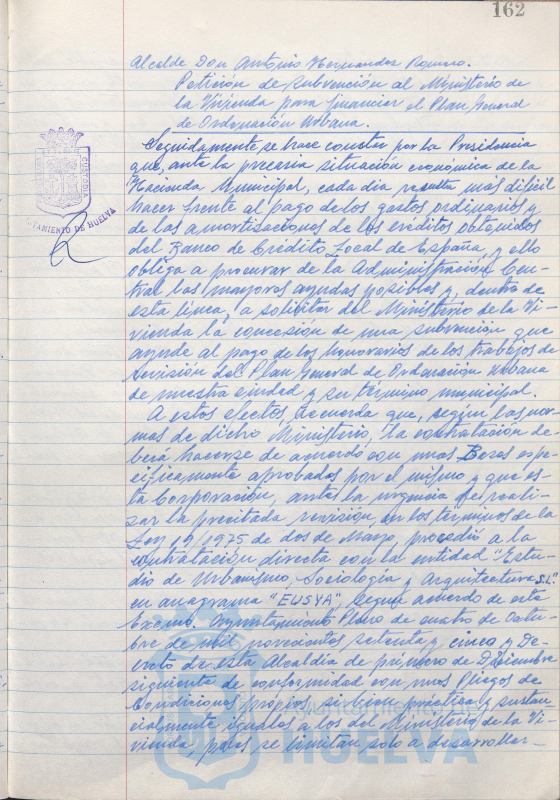 162
Alcalde Don Antonio Hernandez Romero.
Petición de subvención al Ministerio de
la Vivienda para financiar el Plan General
de Ordenación Urbana.
Seguidamente, se hace constar por la Presidencia
que, ante la precaria situación económica de la
Hacienda Municipal, cada día resulta más difícil
hacer frente al pago de los gastos ordinarios y
de las amortizaciones de los créditos obtenidos
del Banco de Crédito Local de España, y ello
obliga a procurar de la Administración Cen-
tral las mayores ayudas posibles y, dentro de
esta línea, a solicitar del Ministerio de la Vi-
vienda la concesión de una subvención que
ayude al pago de los honorarios de los trabajos de
Revisión del Plan General de Ordenación Urbana
de nuestra ciudad y su término municipal.
A estos efectos, acuerda que, según las nor-
mas de dicho Ministerio, la contratación de-
berá hacerse de acuerdo con unas Bases espe-
cíficamente aprobadas por el mismo y que es-
ta Corporación, ante la urgencia de reali-
zar la precitada revisión, en los términos de la
Ley 19/1975 de dos de Mayo, procedió a la
contratación directa con la entidad "Estu-
dio de Urbanismo, Sociología y Arquitectura S.L."
en anagrama "EUSYA", según acuerdo de este
Excmo. Ayuntamiento Pleno de cuatro de Octu-
bre de mil novecientos setenta y cinco y De-
creto de esta Alcaldía de primero de Diciembre
siguiente de conformidad con unos Pliegos de
Condiciones propios, si bien práctica y sustan-
cialmente iguales a los del Ministerio de la Vi-
vienda, pues se limitan solo a desarrollar
AYUNTAMIENTO DE HUELVA
HUELVA